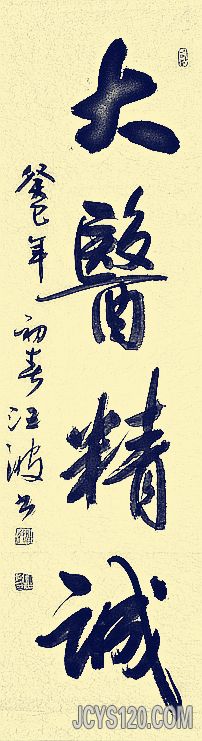 大醫精誠
癸巳年初春汪波书
JCYS120.COM